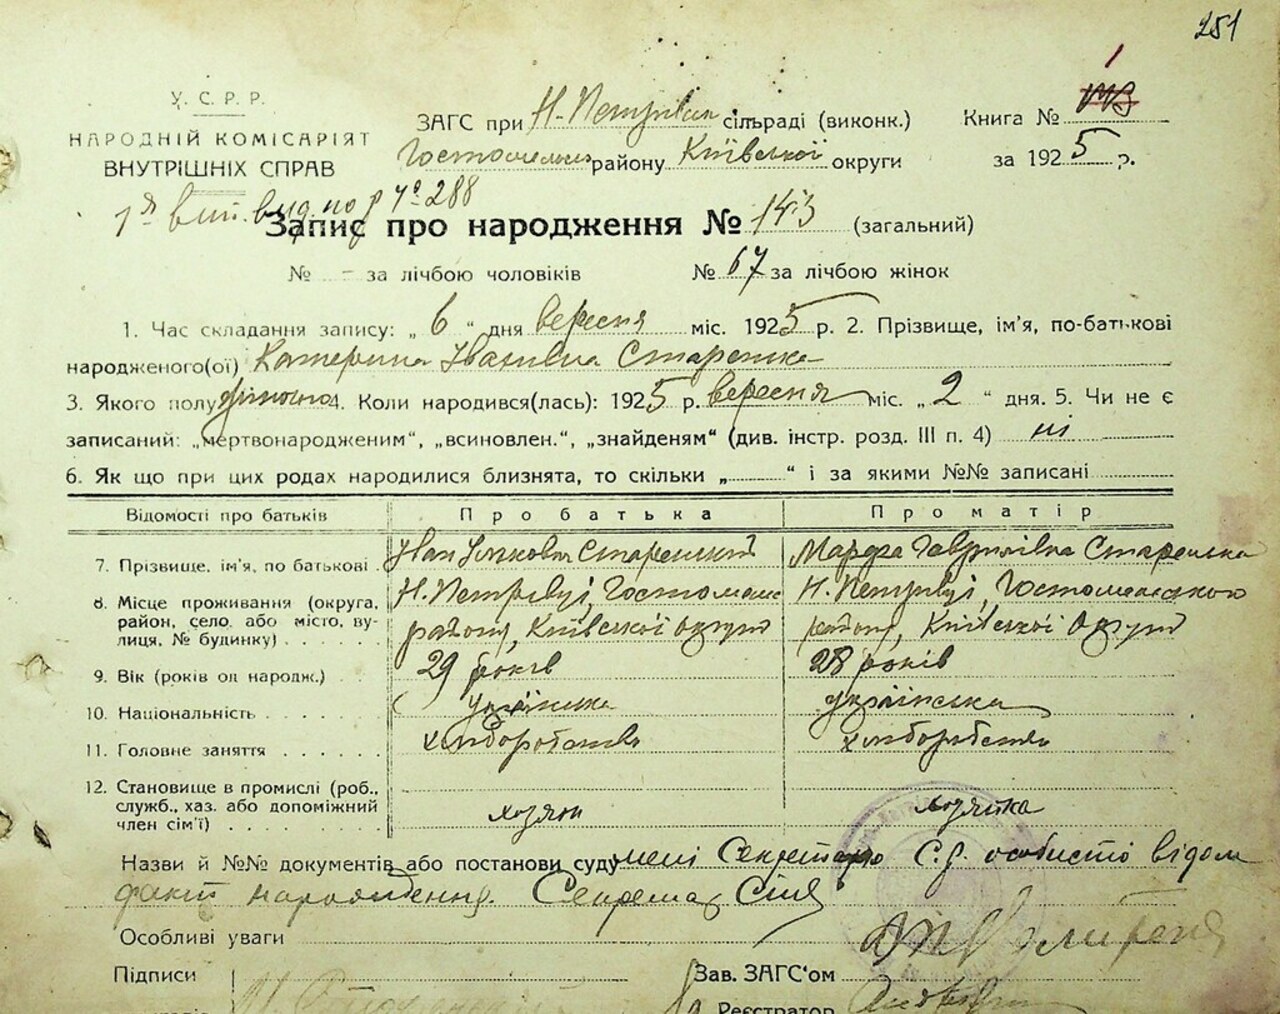 251
У. С. Р. Р.
НАРОДНІЙ КОМІСАРІЯТ
ВНУТРІШНІХ СПРАВ
ЗАГС при Н-Петрівск. сільраді (виконк.)
Гостомельск. району Київської округи
Книга №
за 1925 р.
1я вип. вид. по р № 288
Запис про народження № 143 (загальний)
№ - за лічбою чоловіків № 67 за лічбою жінок
1. Час складання запису: „ 6 “ дня вересня міс. 1925 р. 2. Прізвище, ім’я, по-батькові
народженого(ої) Катерина Іванівна Старенька
3. Якого полу жіночо 4. Коли народився(лась): 1925 р. вересня міс. „ 2 “ дня. 5. Чи не є
записаний: „мертвонародженим“, „всиновлен.“, „знайденям“ (див. інстр. розд. III п. 4) ні
6. Як що при цих родах народилися близнята, то скільки „ “ і за якими №№ записані
Відомості про батьків Про батька Про матір
7. Прізвище, ім’я, по батькові Іван Старенький Марфа Гаврилівна Старенька
8. Місце проживання (округа, район, село або місто, вулиця, № будинку)
Н. Петрівці, Гостомель району, Київської округи
Н. Петрівці, Гостомельського району, Київської округи
9. Вік (років од народж.) 29 років 28 років
10. Національність українська українська
11. Головне заняття хліборобство хліборобство
12. Становище в промислі (роб., служб., хаз. або допоміжний член сім’ї) хозяин хозяйка
Назви й №№ документів або постанови суду мені Секретарю С.р. особисто відом
факт народження. Секретар
Особливі уваги
Підписи Зав. ЗАГС‘ом
Реєстратор